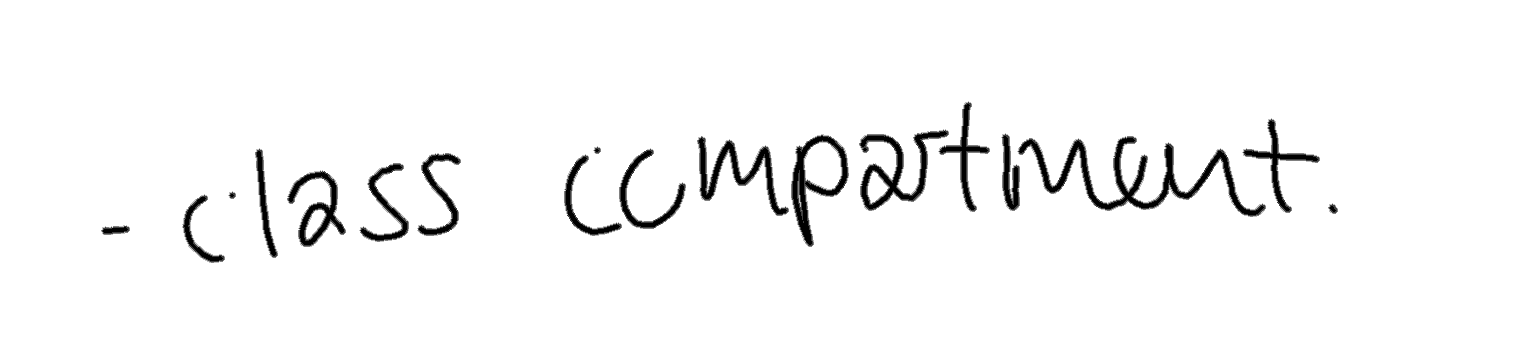 - class compartment.